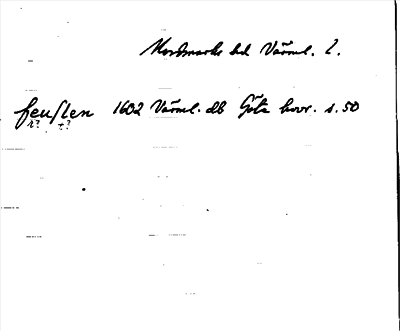 Nordmarks hd Värml. l.
feuſlen 1602 Värml. db Göta hovr. s. 50
r? t?